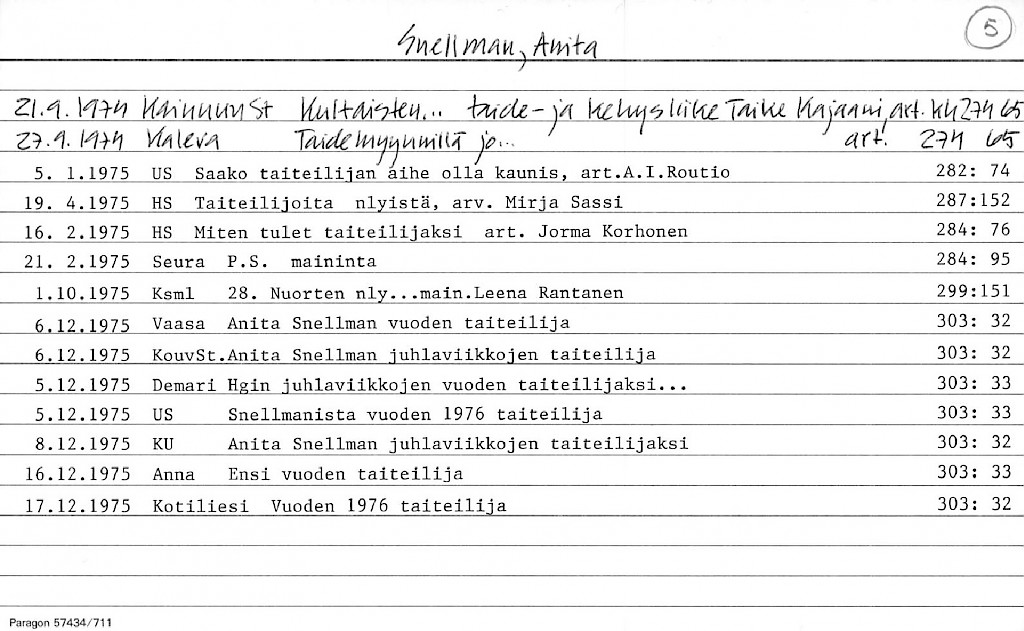 5
Snellman, Anita
21.9.1974 KainuunSt Kultaisten... taide- ja kehysliike Taike Kajaani, art. kk 274 65
27.9.1974 Kaleva Taidemyynnillä jo... art. 274 65
5. 1.1975 US Saako taiteilijan aihe olla kaunis, art.A.I.Routio 282: 74
19. 4.1975 HS Taiteilijoita nlyistä, arv. Mirja Sassi 287:152
16. 2.1975 HS Miten tulet taiteilijaksi art. Jorma Korhonen 284: 76
21. 2.1975 Seura P.S. maininta 284: 95
1.10.1975 Ksml 28. Nuorten nly...main.Leena Rantanen 299:151
6.12.1975 Vaasa Anita Snellman vuoden taiteilija 303: 32
6.12.1975 KouvSt.Anita Snellman juhlaviikkojen taiteilija 303: 32
5.12.1975 Demari Hgin juhlaviikkojen vuoden taiteilijaksi... 303: 33
5.12.1975 US Snellmanista vuoden 1976 taiteilija 303: 33
8.12.1975 KU Anita Snellman juhlaviikkojen taiteilijaksi 303: 32
16.12.1975 Anna Ensi vuoden taiteilija 303: 33
17.12.1975 Kotiliesi Vuoden 1976 taiteilija 303: 32
Paragon 57434/711